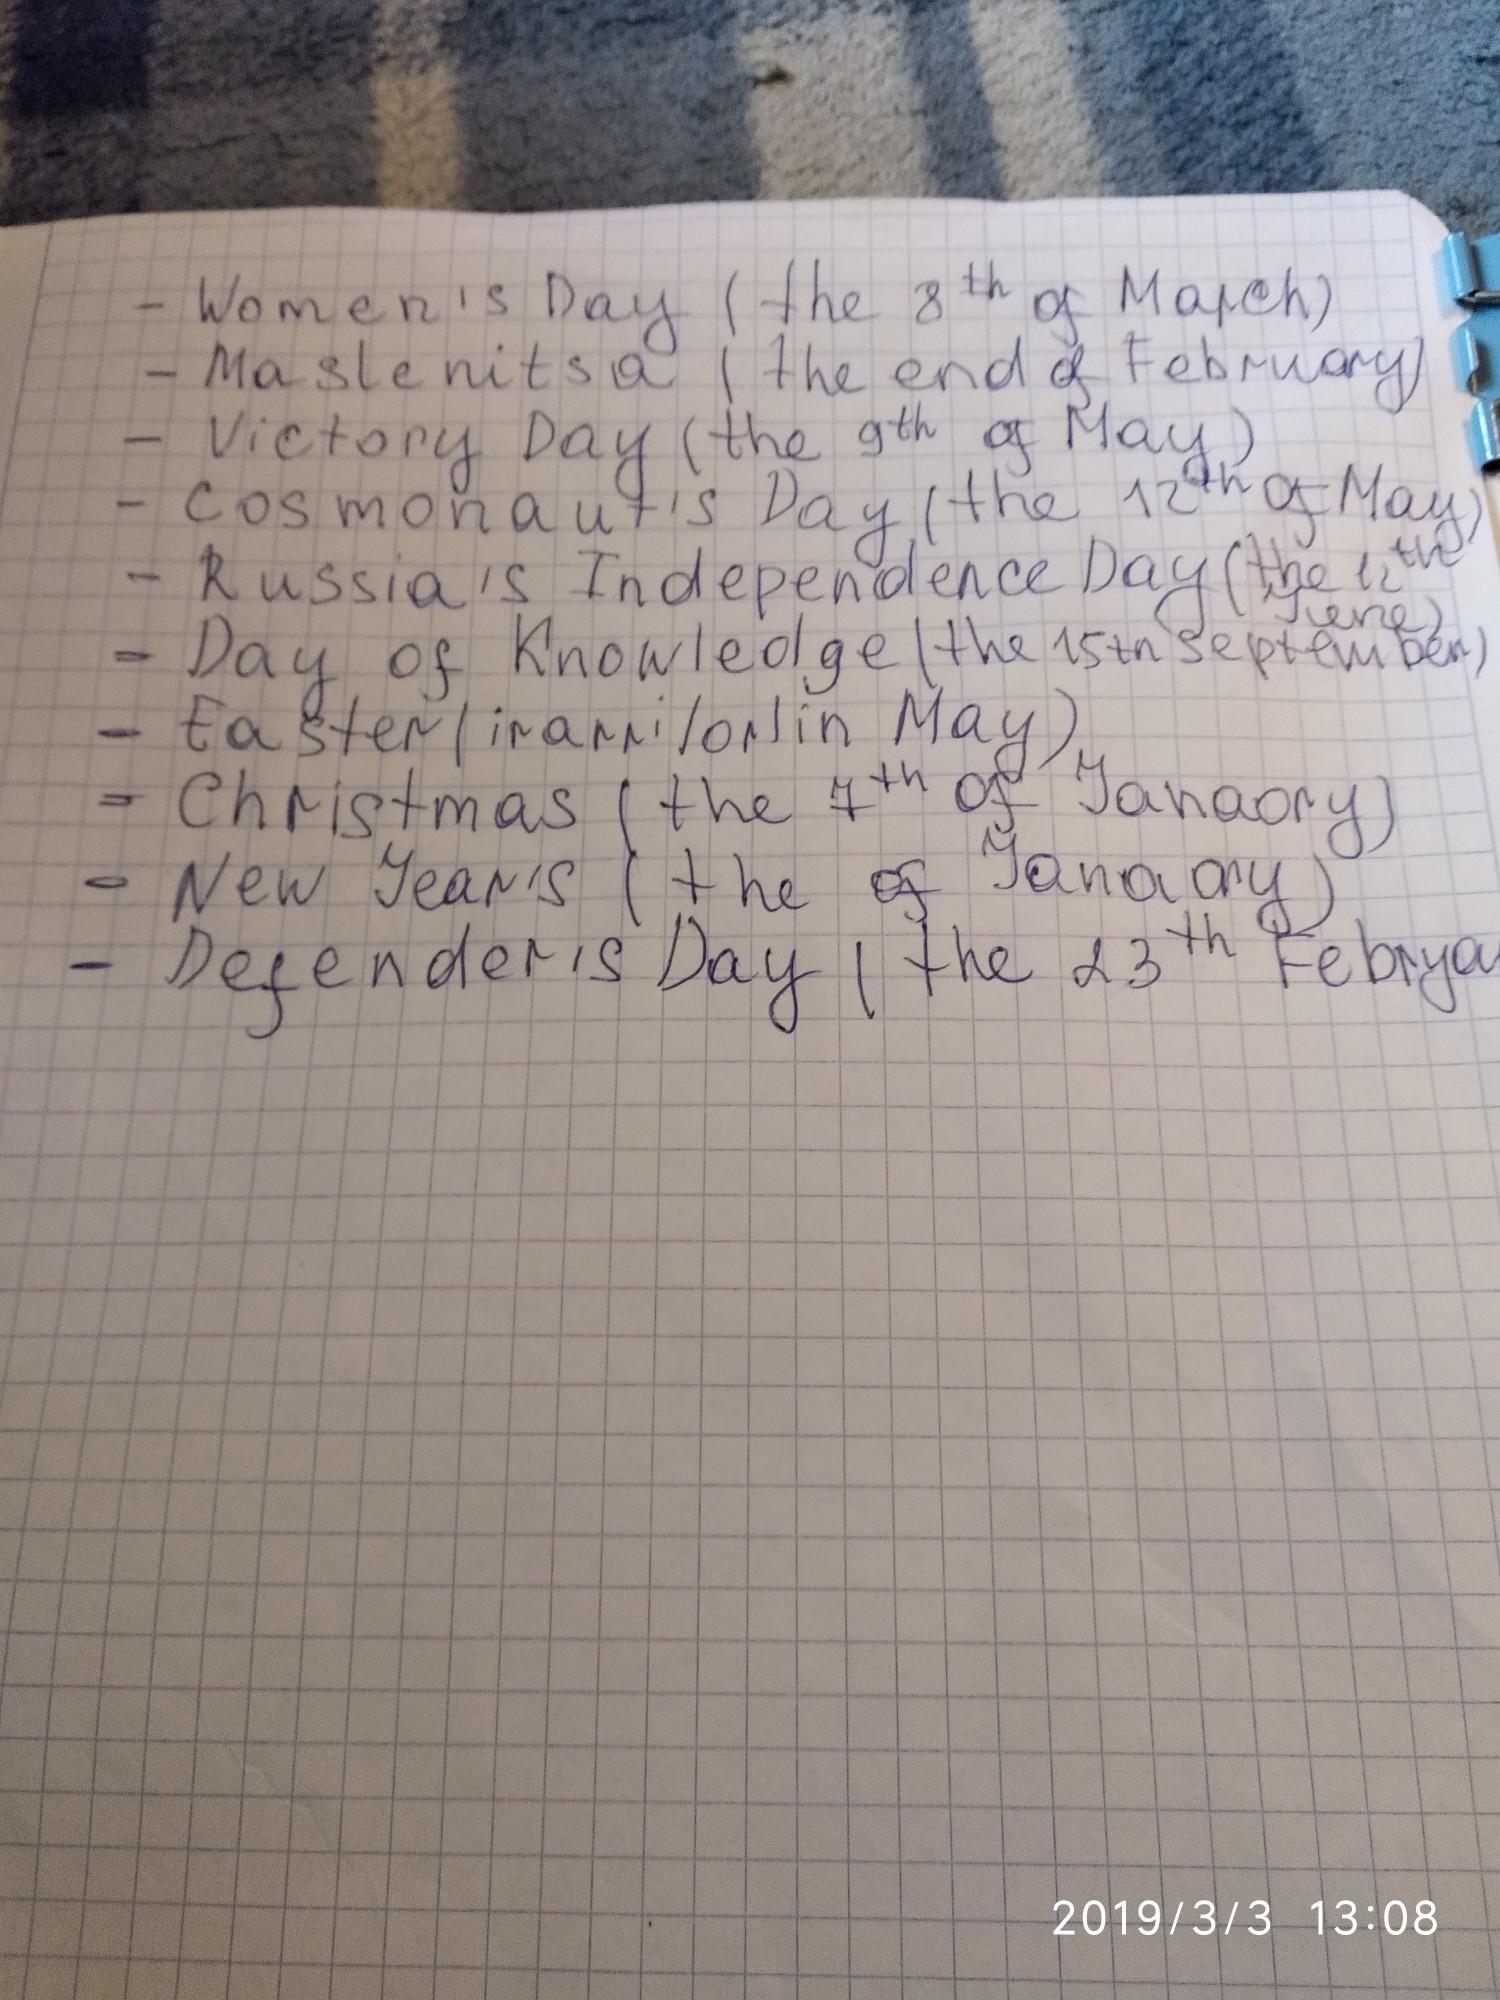 - Women's Day (the 8th of March)
- Maslenitsa (the end of February)
- Victory Day (the 9th of May)
- Cosmonaut's Day (the 12th of May)
- Russia's Independence Day (the 12th
June)
- Day of Knowledge (the 15th September)
- Easter (in or in May)
- Christmas (the 7th of Janaory)
- New Year's (the of Janaory)
- Defender's Day (the 23th Februa
2019/3/3 13:08